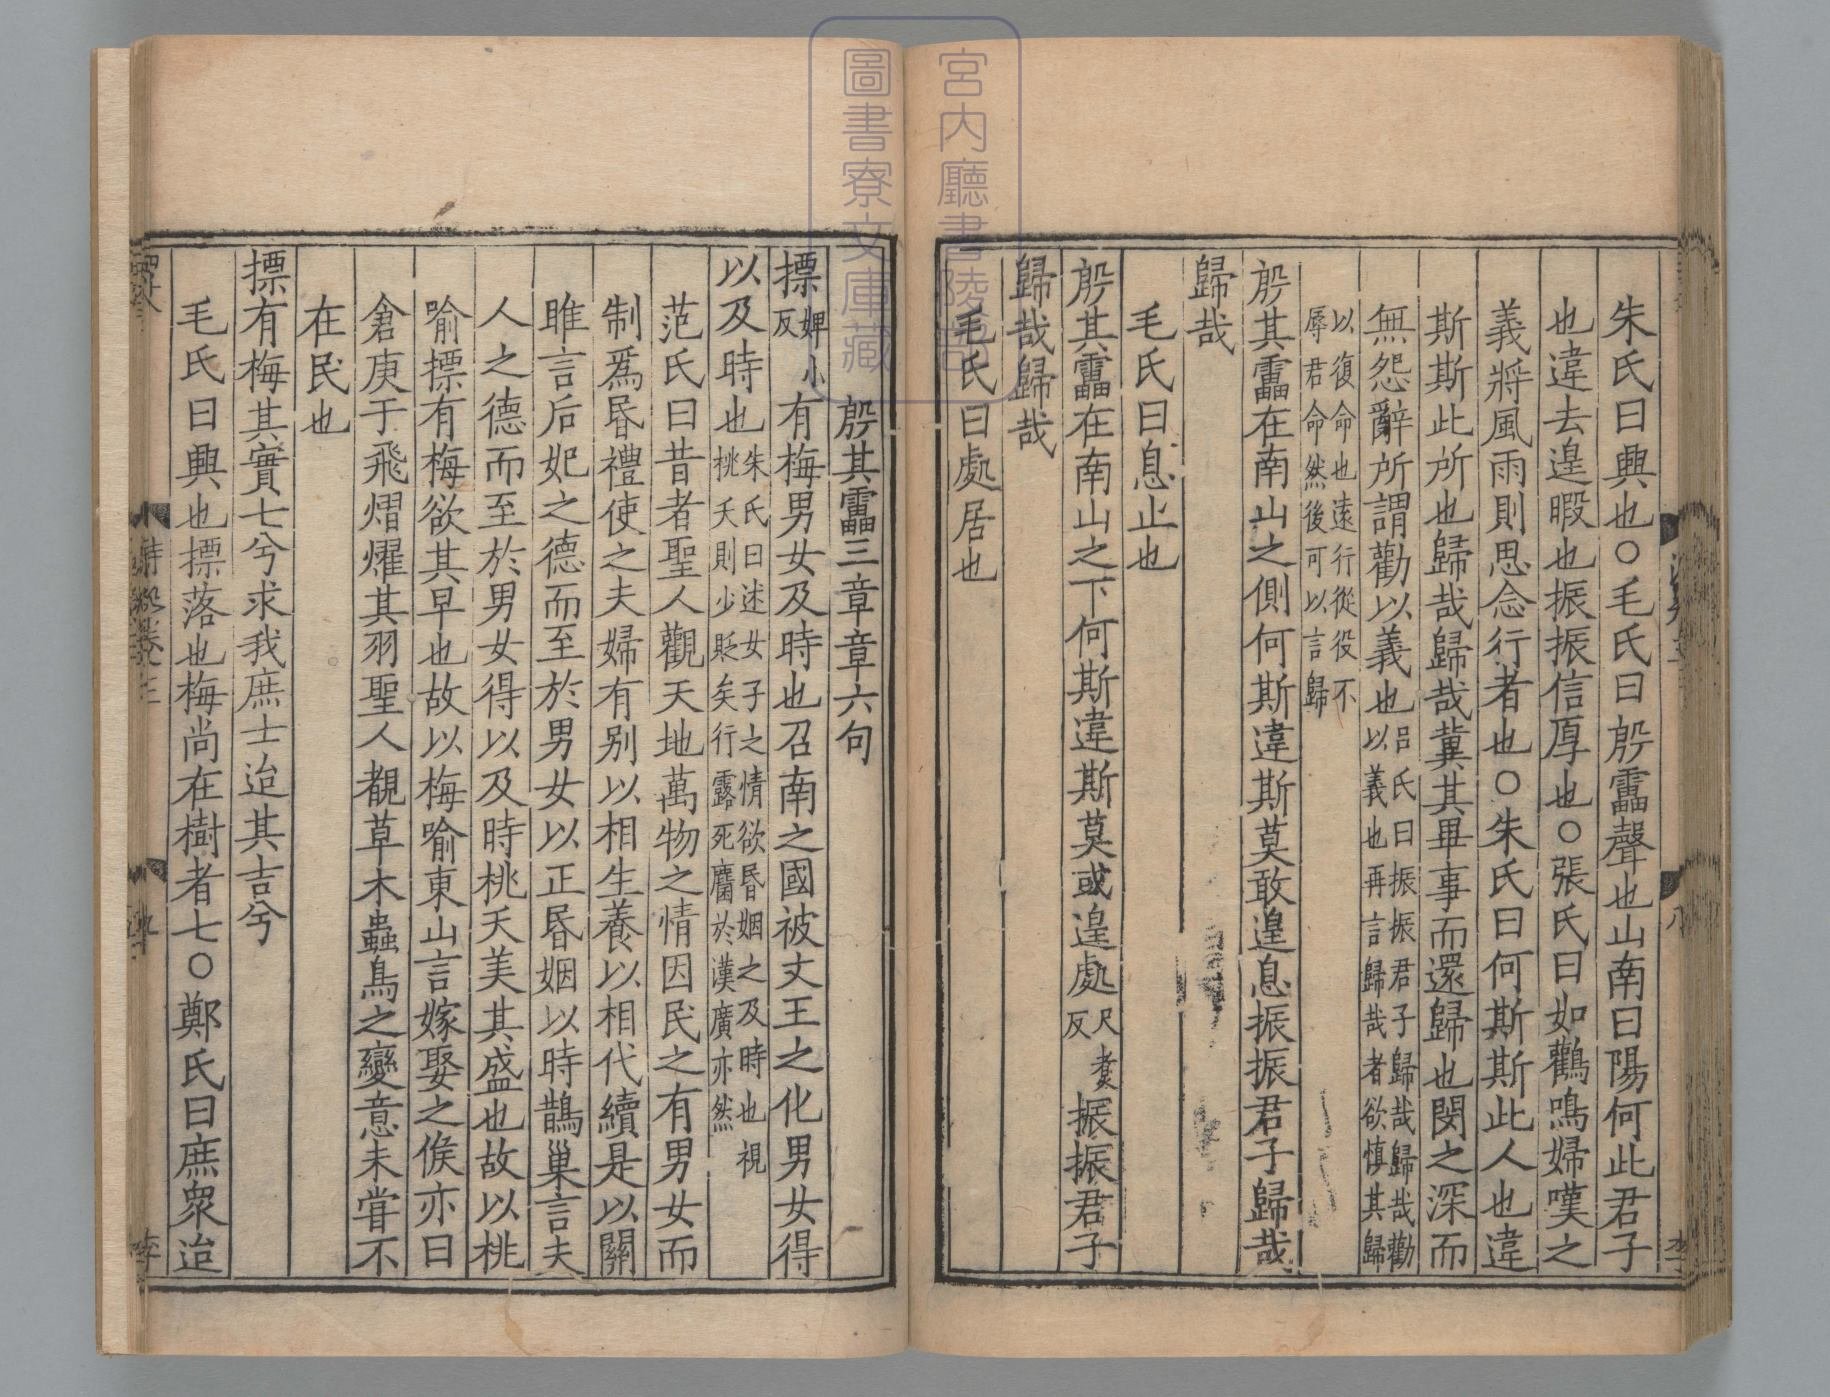 朱氏曰興也○毛氏曰殷靁聲也山南曰陽何此君子
也違去遑暇也振振信厚也○張氏曰如鸛鳴婦嘆之
義將風雨則思念行者也○朱氏曰何斯斯此人也違
斯斯此所也歸哉歸哉冀其畢事而還歸也閔之深而
無怨辭所謂勸以義也吕氏曰振振君子歸哉歸哉勸
以義也再言歸哉者欲慎其歸
以復命也遠行從役不
辱君命然後可以言歸
殷其靁在南山之側何斯違斯莫敢遑息振振君子歸哉
歸哉
毛氏曰息止也
殷其靁在南山之下何斯違斯莫或遑處尺煑反振振君子
歸哉歸哉
毛氏曰處居也
殷其靁三章章六句
摽婢小反有梅男女及時也召南之國被文王之化男女得
以及時也朱氏曰述女子之情欲昏姻之及時也視
桃夭則少貶矣行露死麕於漢廣亦然
范氏曰昔者聖人觀天地萬物之情因民之有男女而
制爲昏禮使之夫婦有别以相生養以相代續是以關
雎言后妃之德而至於男女以正昏姻以時鵲巢言夫
人之德而至於男女得以及時桃夭美其盛也故以桃
喻摽有梅欲其早也故以梅喻東山言嫁娶之候亦曰
倉庚于飛熠燿其羽聖人覩草木蟲鳥之變意未甞不
在民也
摽有梅其實七兮求我庶士迨其吉兮
毛氏曰興也摽落也梅尚在樹者七○鄭氏曰庶衆迨
宮内廳書陵部
圖書寮文庫藏